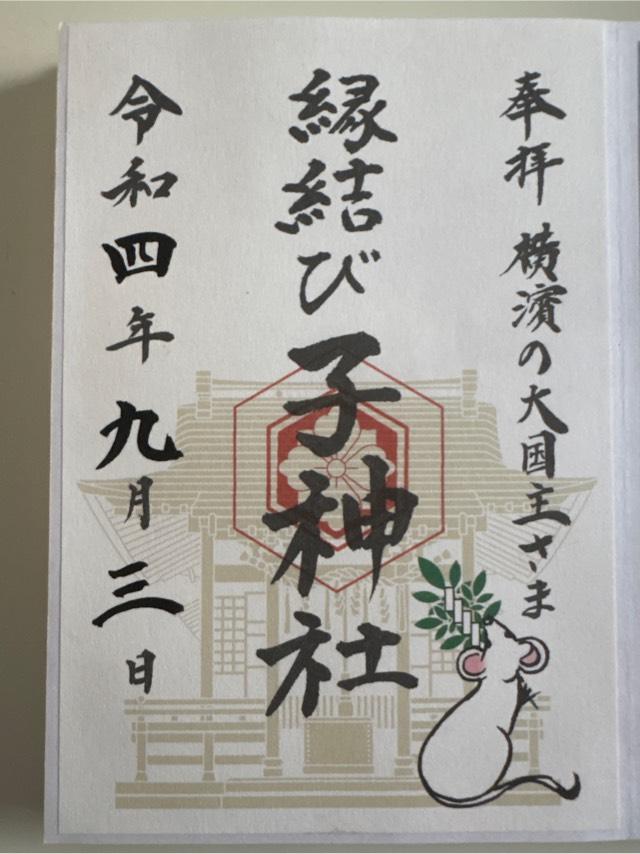 奉拝 横濱の大国主さま
縁結び子神社
令和四年九月三日